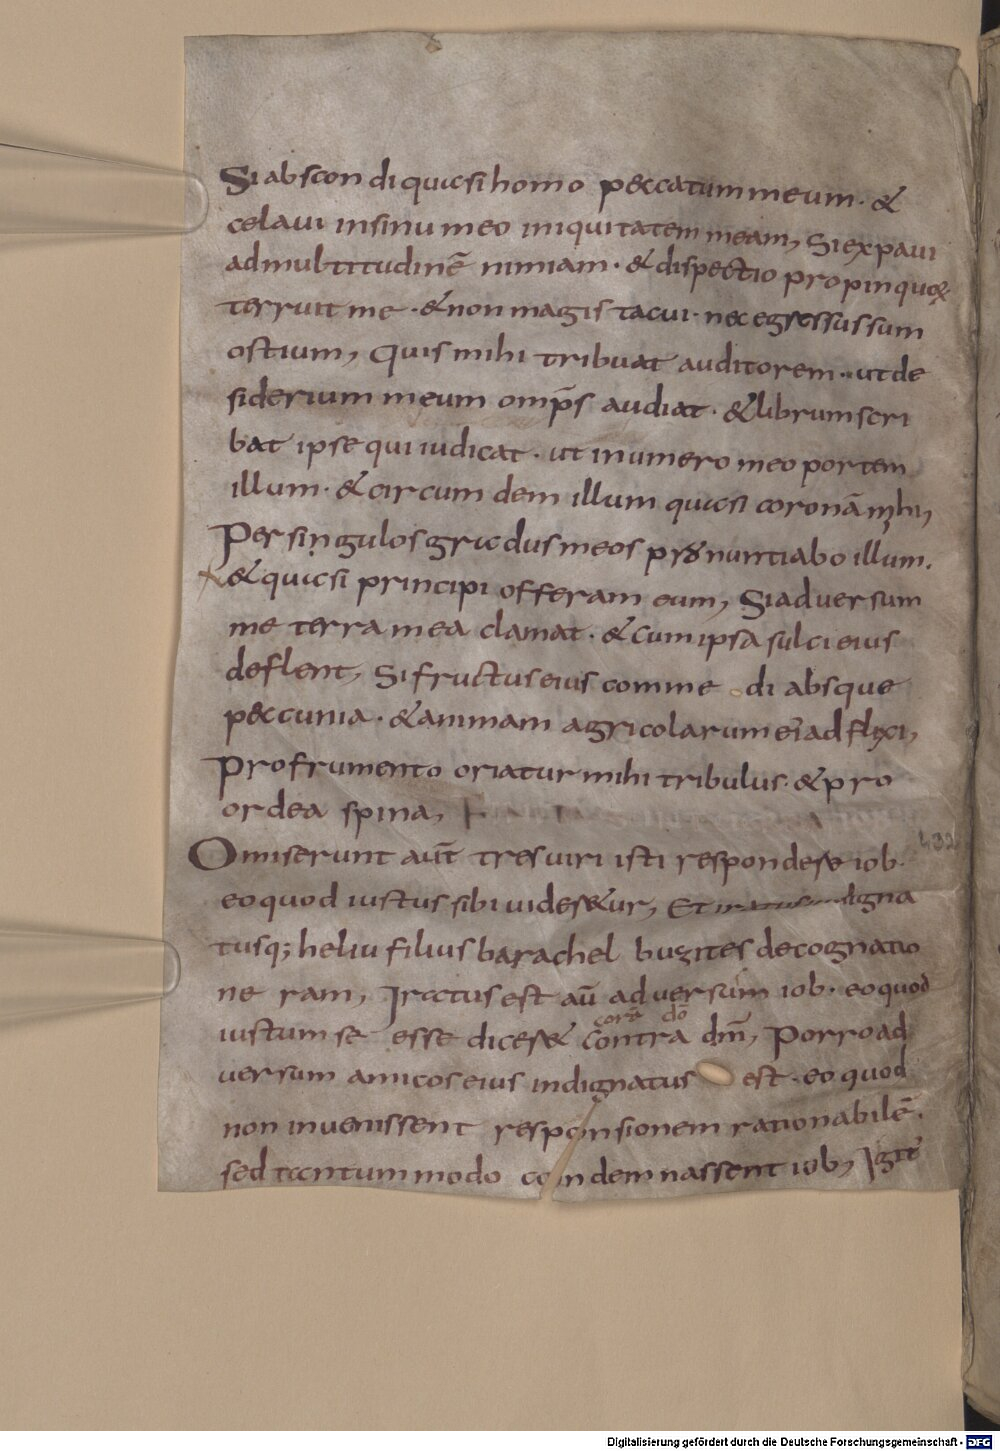 Si abscondi quasi homo peccatum meum · &
celavi in sinu meo iniquitatem meam, Si expavi
ad multitudinē nimiam · & dispectio propinquoꝝ
terruit me · & non magis tacui · nec egressus sum
ostium, Quis mihi tribuat auditorem · ut de
siderium meum omp̄s audiat · & librum scri
bat ipse qui iudicat · ut in umero meo portem
illum · & circumdem illum quasi coronā mihi,
Per singulos gradus meos pronuntiabo illum.
& quasi principi offeram eum, Si adversum
me terra mea clamat · & cum ipsa sulci eius
deflent, Si fructus eius comme di absque
peccunia · & animam agricolarum eī adflixi,
Pro frumento oriatur mihi tribulus · & pro
ordea spina,
432
Omiserunt aūt tres viri isti respondere iob ·
eo quod iustus sibi uider&ur, Et iratus indigna
tusq; heliu filius barachel buzites de cognatio
ne ram, Iratus est aū adversum iob · eo quod
corā dō
iustum se esse dicer& contra dm̄, Porro ad
versum amicos eius indignatus est · eo quod
non invenissent responsionem rationabilē ·
sed tantum modo condemnassent iob, Igit̄
Digitalisierung gefördert durch die Deutsche Forschungsgemeinschaft - DFG